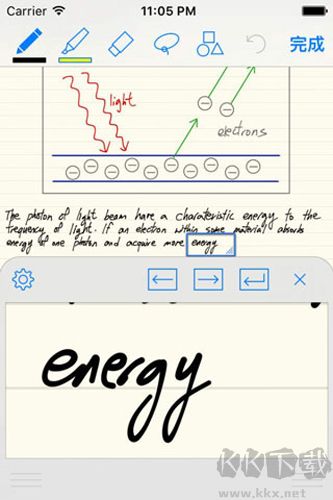 Carrier 11:05 PM
完成
light
electrons
The photon of light beam have a charateristic energy to the
frequency of light. If an electron within some material absorbs
energy of one photon and acquire more energy
energy
KK下载
www.kkx.net